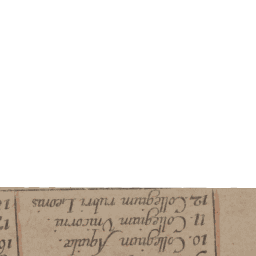 10. Collegium Aquilæ.
11. Collegium Vnicorni
12. Collegium rubri Leonis